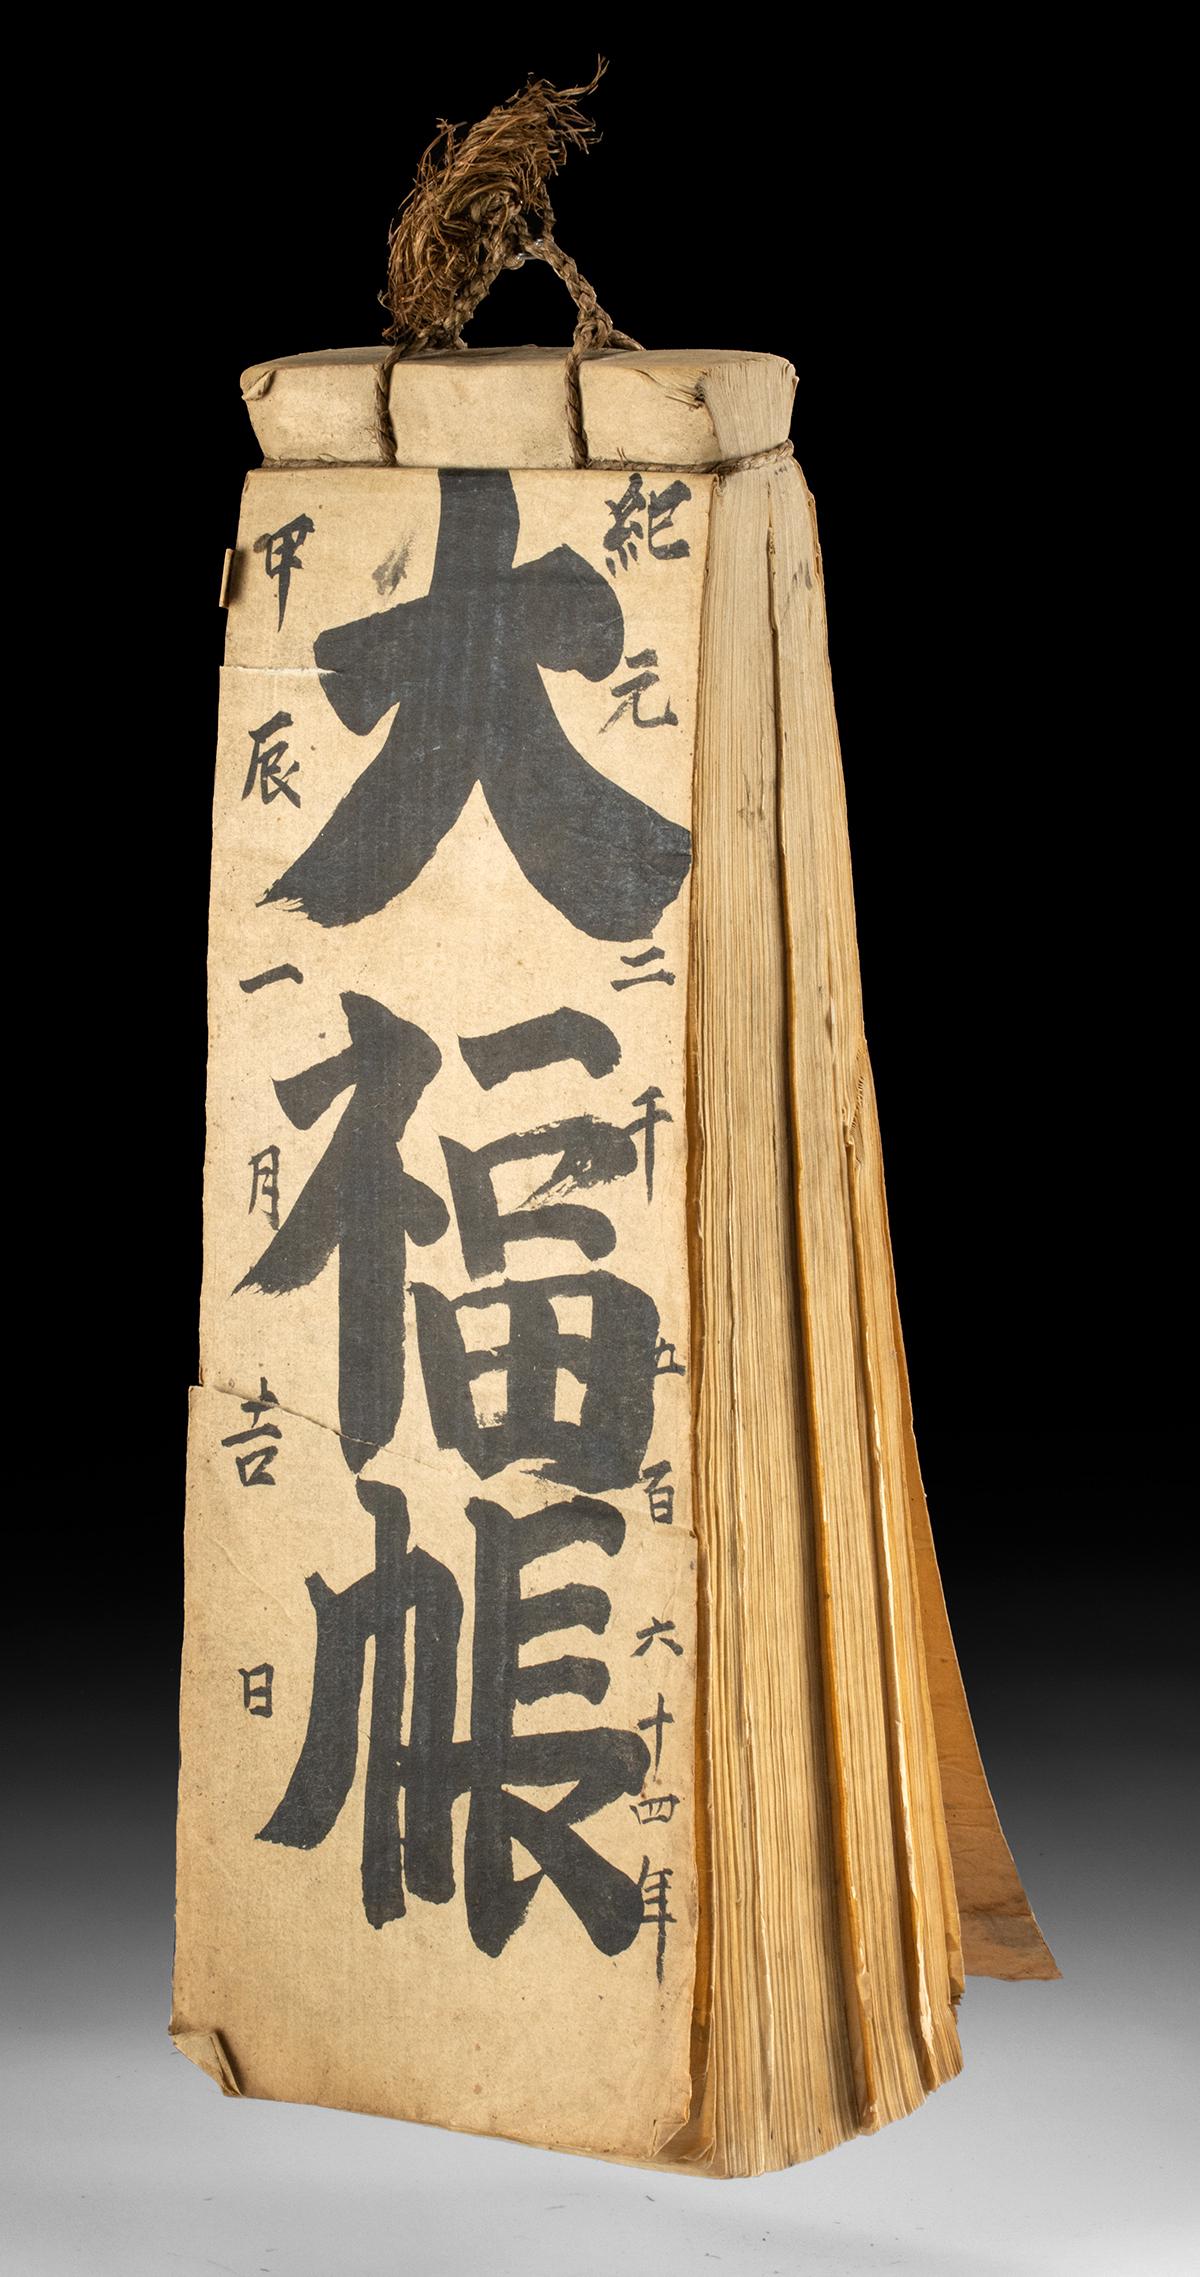 紀元二千五百六十四年
大福帳
甲辰一月吉日